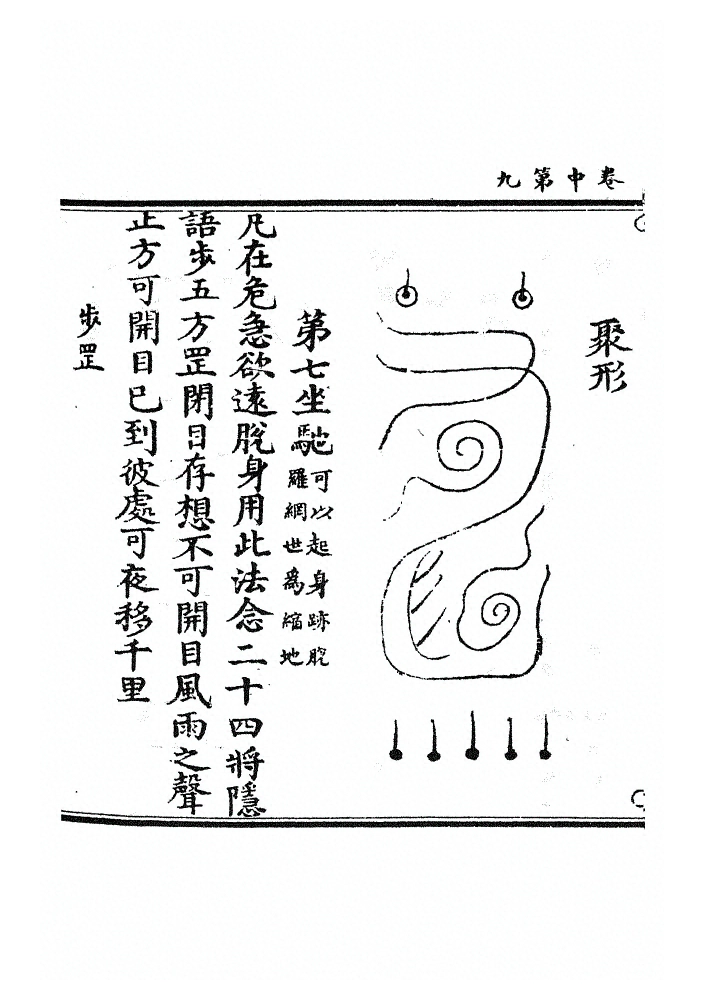 卷中第九
聚形
第七坐馳
可以起身跡脫
羅網世為縮地
凡在危急欲遠脫身用此法念二十四將隱
語步五方罡閉目存想不可開目風雨之聲
止方可開目已到彼處可夜移千里
步罡